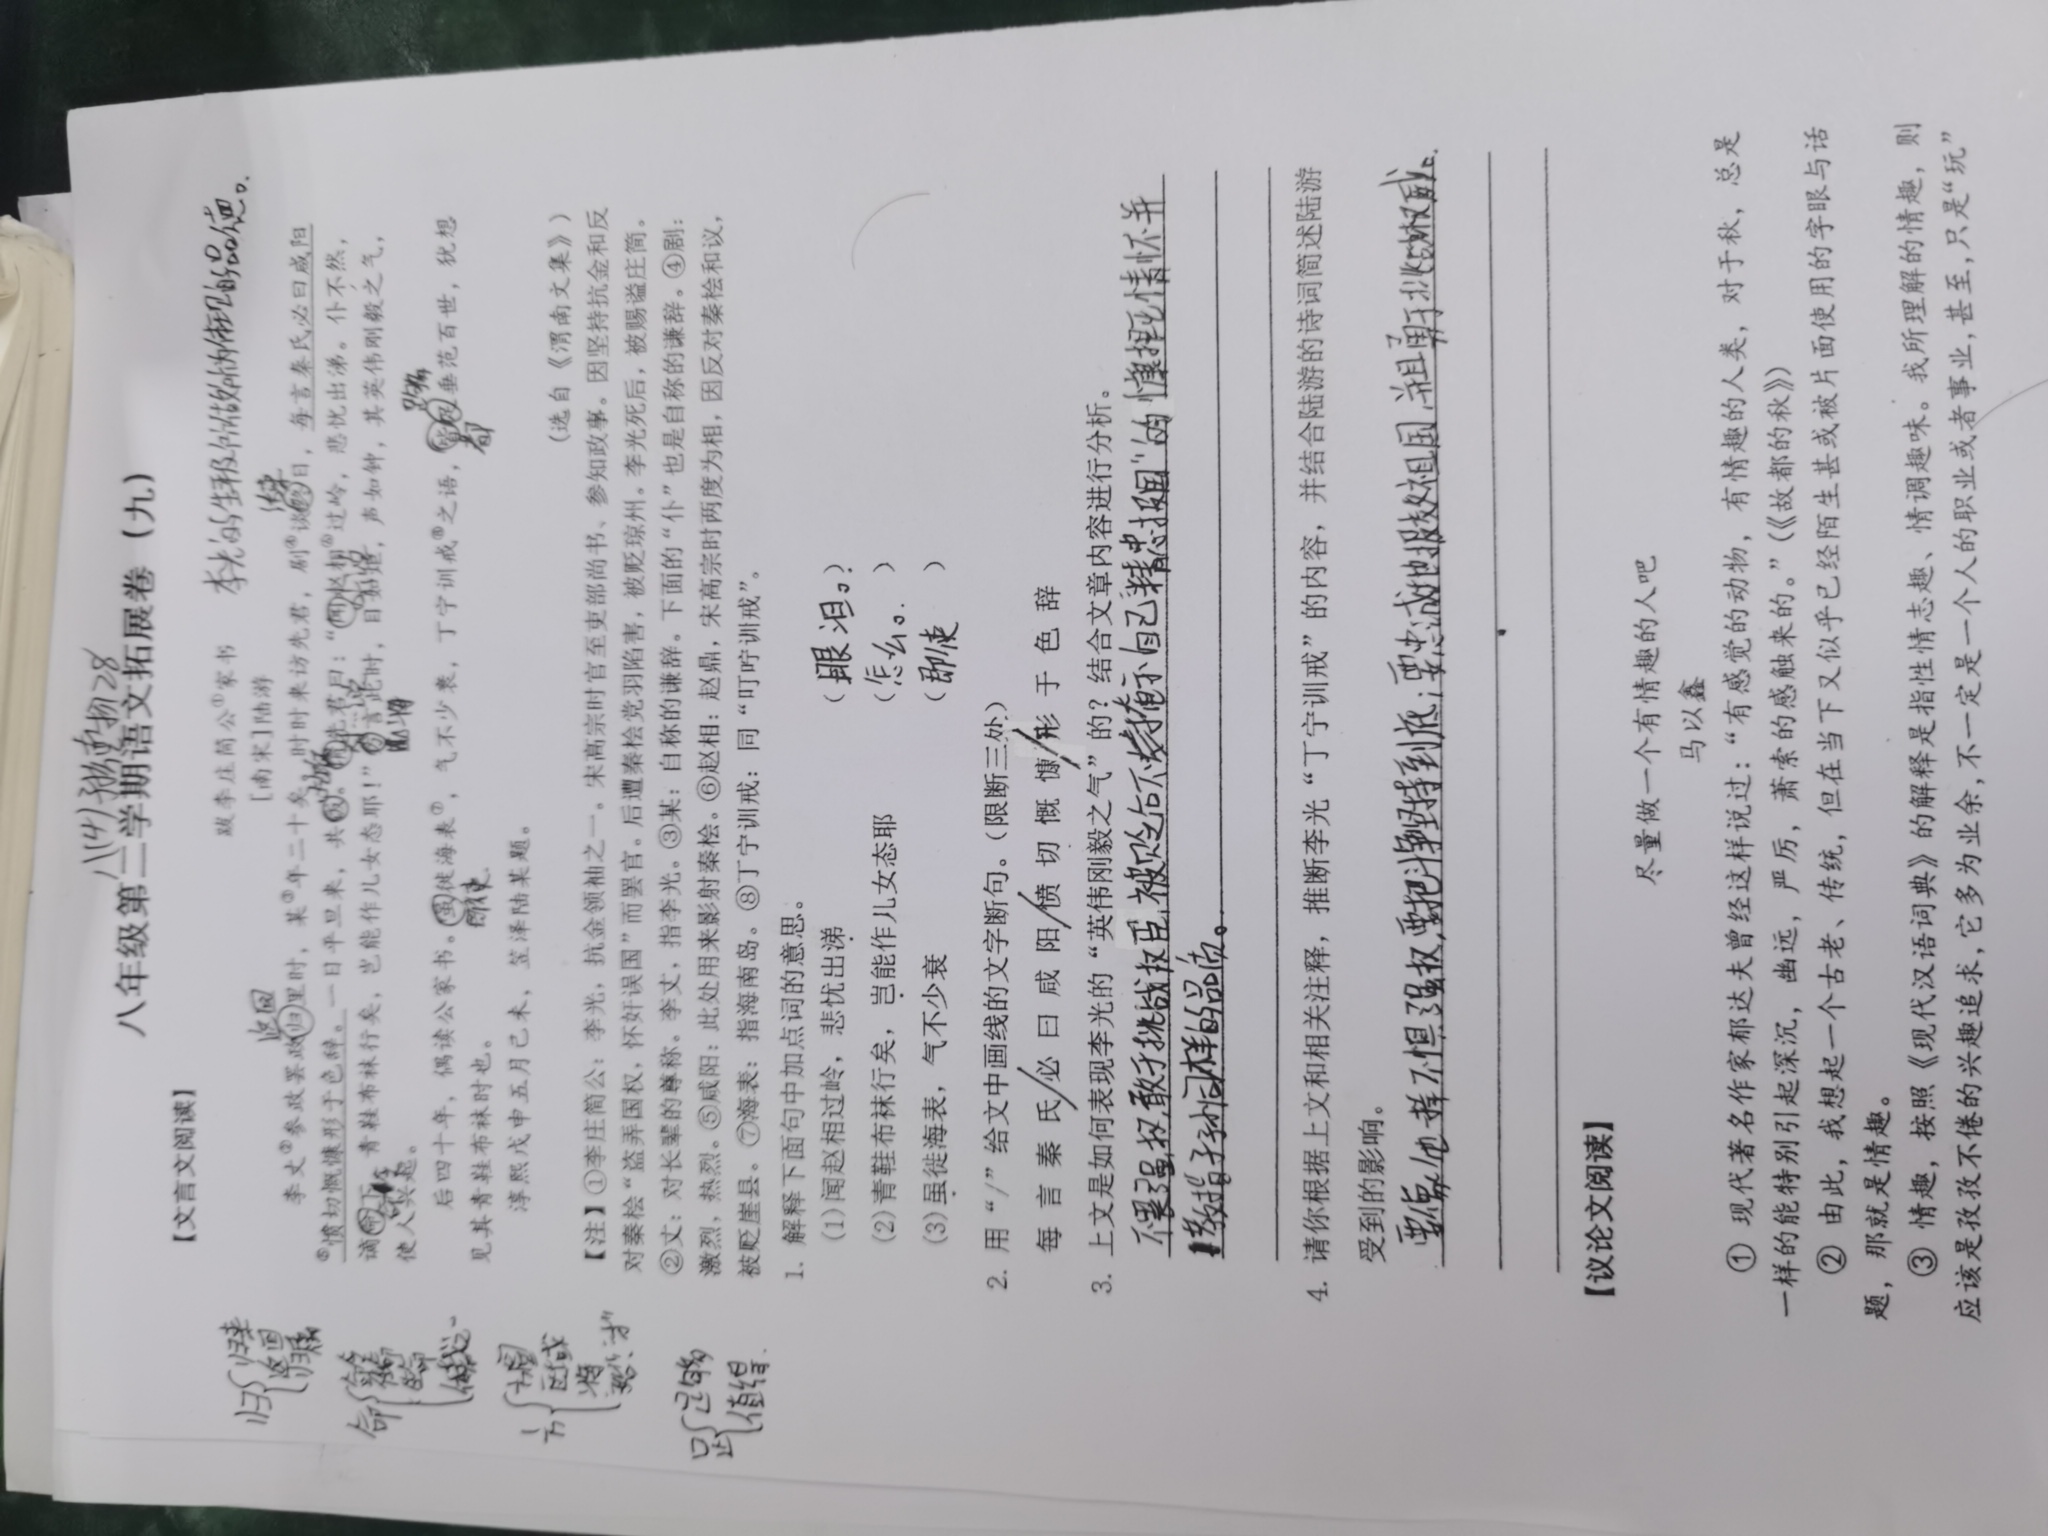 八(4) 28
八年级第二学期语文拓展卷（九）
【文言文阅读】
跋李庄简公①家书
李光的生平及所做所为体现的品德。
[南宋]陆游
返回
李丈②参政罢政归里时，某③年二十矣。时时来访先君，剧④谈终日，每言秦氏必曰咸阳
⑤愤切慨慷形于色辞。一日平旦来，共饭。谓先君曰：“闻赵相⑥过岭，悲忧出涕。仆不然，
谪命下，青鞋布袜行矣，岂能作儿女态耶！”方言此时，目如炬，声如钟，其英伟刚毅之气，
使人兴起。
足够
后四十年，偶读公家书。虽徙海表⑦，气不少衰，丁宁训戒⑧之语，皆足垂范百世，犹想
即使
都
见其青鞋布袜时也。
淳熙戊申五月己未，笠泽陆某题。
（选自《渭南文集》）
归
归来
返回
命
生命
方
方圆
区域
将
足
足够
值得
【注】①李庄简公：李光，抗金领袖之一。宋高宗时官至吏部尚书、参知政事。因坚持抗金和反
对秦桧“盗弄国权，怀奸误国”而罢官。后遭秦桧党羽陷害，被贬琼州。李光死后，被赐谥庄简。
②丈：对长辈的尊称。李丈，指李光。③某：自称的谦辞。下面的“仆”也是自称的谦辞。④剧：
激烈，热烈。⑤咸阳：此处用来影射秦桧。⑥赵相：赵鼎，宋高宗时两度为相，因反对秦桧和议，
被贬崖县。⑦海表：指海南岛。⑧丁宁训戒：同“叮咛训戒”。
1. 解释下面句中加点词的意思。
(1)闻赵相过岭，悲忧出涕 （眼泪。）
(2)青鞋布袜行矣，岂能作儿女态耶 （怎么。）
(3)虽徙海表，气不少衰 （即使）
2. 用“/”给文中画线的文字断句。（限断三处）
每言秦氏/必曰咸阳/愤切慨慷/形于色辞
3. 上文是如何表现李光的“英伟刚毅之气”的？结合文章内容进行分析。
不畏强权，敢于挑战权臣，被贬之后不掩示自己“精忠报国”的情怀并
教指子孙同样的品质。
4. 请你根据上文和相关注释，推断李光“丁宁训戒”的内容，并结合陆游的诗词简述陆游
受到的影响。
要像他一样不惧强权，要把斗争坚持到底；要忠诚地报效祖国，并且勇于挑战权威。
【议论文阅读】
尽量做一个有情趣的人吧
马以鑫
① 现代著名作家郁达夫曾经这样说过：“有感觉的动物，有情趣的人类，对于秋，总是
一样的能特别引起深沉，幽远，严厉，萧索的感触来的。”（《故都的秋》）
② 由此，我想起一个古老、传统，但在当下又似乎已经陌生甚或被片面使用的字眼与话
题，那就是情趣。
③ 情趣，按照《现代汉语词典》的解释是指性情志趣、情调趣味。我所理解的情趣，则
应该是孜孜不倦的兴趣追求，它多为业余，不一定是一个人的职业或者事业，甚至，只是“玩”